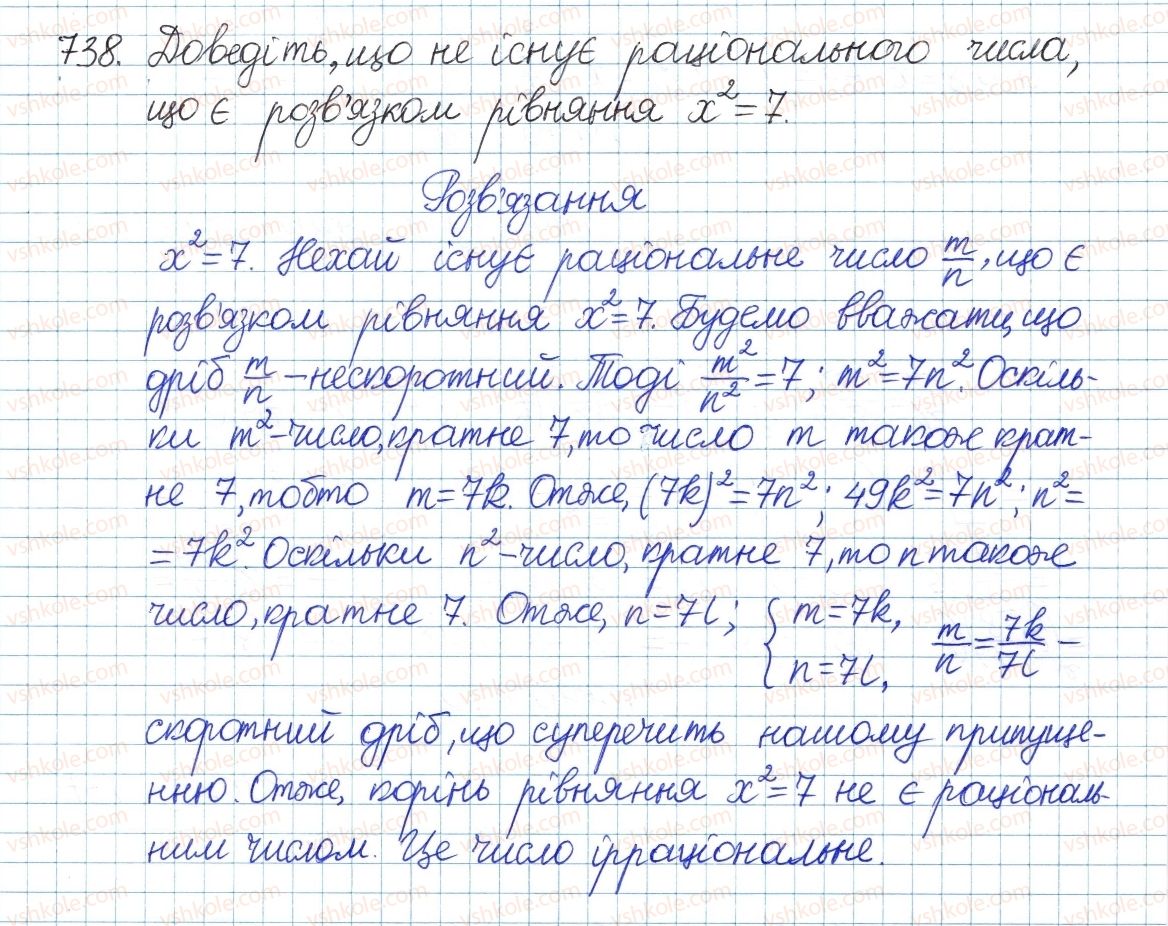 738. Доведіть, що не існує раціонального числа,
що є розв'язком рівняння x² = 7.
Розв'язання
x² = 7. Нехай існує раціональне число m/n, що є
розв'язком рівняння x² = 7. Будемо вважати, що
дріб m/n – нескоротний. Тоді m²/n² = 7; m² = 7n². Оскіль-
ки m² – число, кратне 7, то число m також крат-
не 7, тобто m = 7k. Отже, (7k)² = 7n²; 49k² = 7n²; n² =
= 7k². Оскільки n² – число, кратне 7, то n також
число, кратне 7. Отже, n = 7l; { m = 7k, n = 7l, m/n = 7k/7l –
скоротний дріб, що суперечить нашому припуще-
нню. Отже, корінь рівняння x² = 7 не є раціональ-
ним числом. Це число ірраціональне.
vshkole.com